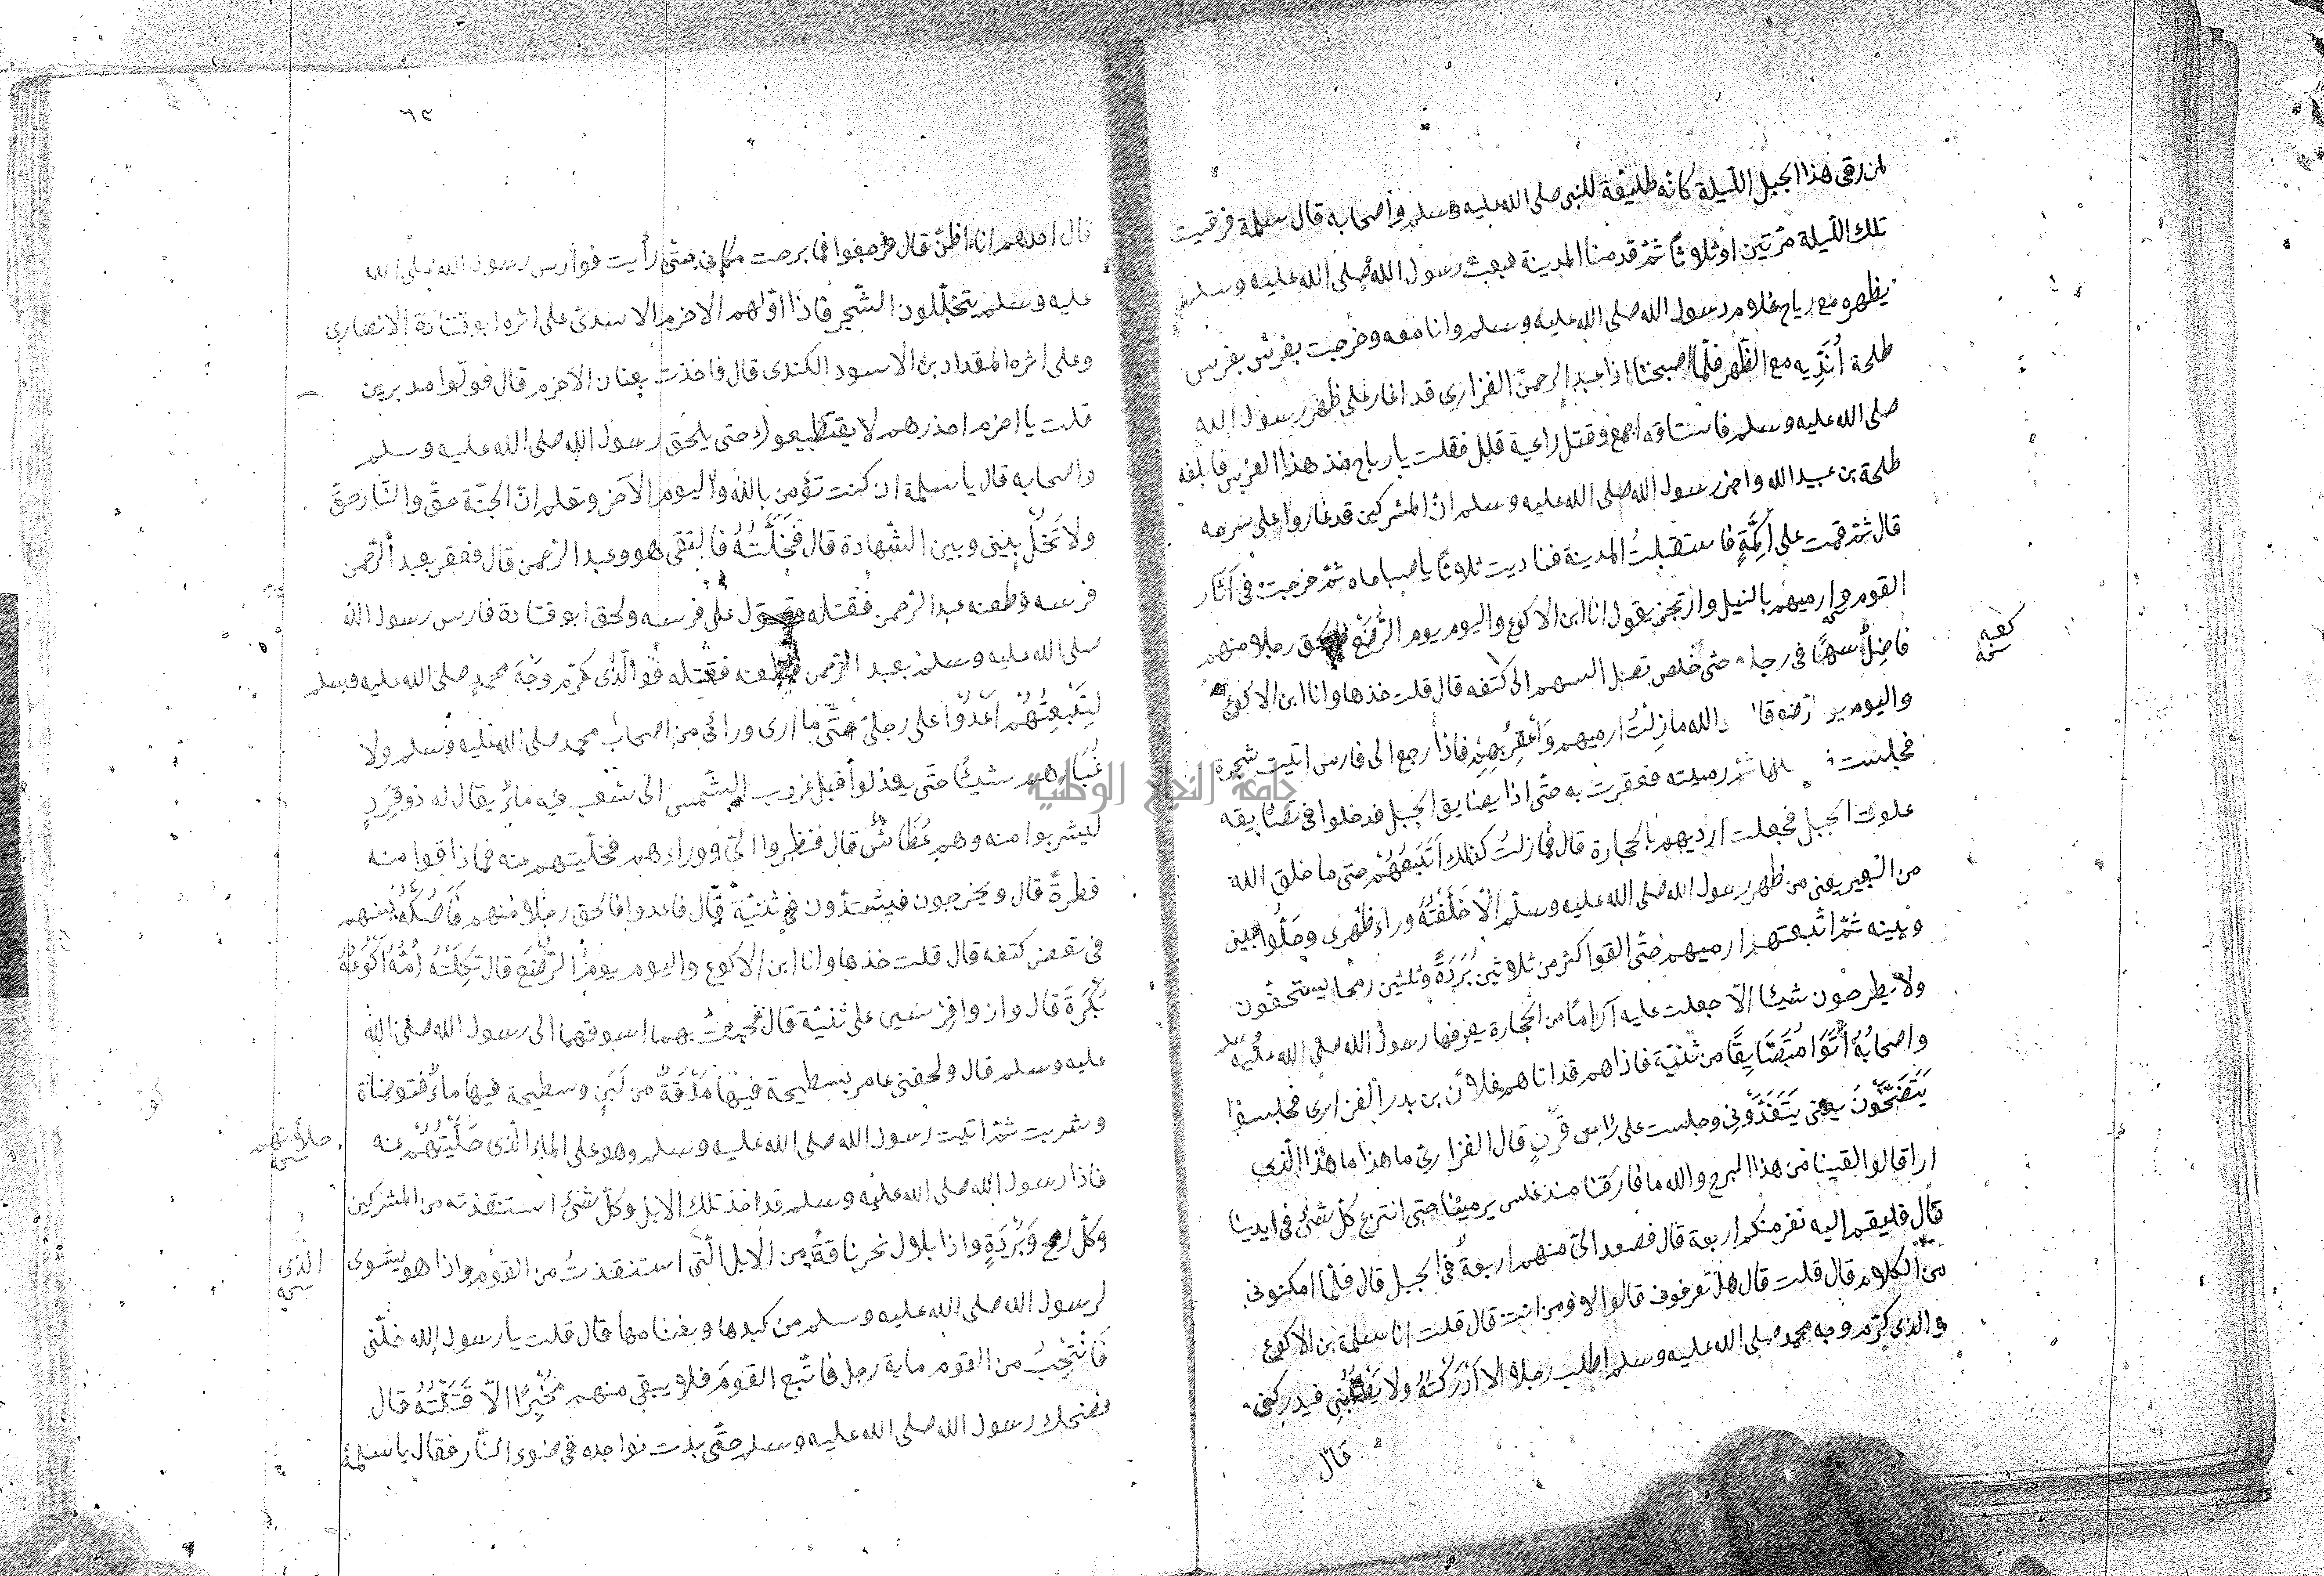 لمن رقى هذا الجبل الليلة كانه طليعة للنبى صلى الله عليه وسلم واصحابه قال سلمة فرقيت
تلك الليلة مرّتين او ثلاثاً ثمّ قدمنا المدينة فبعث رسول الله صلى الله عليه وسلم
يظهره مع رباح غلام رسول الله صلى الله عليه وسلم وانا معه وخرجت بفرس بفرس
طلحة أُنَدِّيه مع الظّهر فلمّا اصبحنا اذا عبد الرحمن الفزارى قد اغار على ظهر رسول الله
صلى الله عليه وسلم فاستاقه اجمع وقتل راعية قال فقلت يا رباح خذ هذا الفرس فابلغه
طلحة بن عبيد الله واخبر رسول الله صلى الله عليه وسلم انّ المشركين قد غاروا على سرحه
قال ثمّ قمت على اَكَمَةٍ فاستقبلتُ المدينة فناديت ثلاثاً يا صباحاه ثمّ خرجت فى آثار
القوم وارميهم بالنبل وارتجز يقول انا ابن الاكوع واليوم يوم الرُّضَّع فالحق رجلا منهم
فاضِلُ سهمًا فى رجله حتى خلص نصل السهم الى كتفه قال قلت خذها وانا ابن الاكوع
واليوم يو الرضع قال والله ما زِلْتُ ارميهم وَأَعْقِرُ بهم فاذا رجع الى فارس اتيت شجرة
فجلست ثمّ رميته فعقرت به حتّى اذا يضايق الجبل فدخلوا فى تضايقه
علوت الجبل فجعلت ارديهم بالحجارة قال فما زلتُ كذلك اَتَّبِعُهُمْ حتى ما خلق الله
من البعير يعنى من ظهر رسول الله صلى الله عليه وسلّم الّا خَلَّفْتُهُ وراء ظهرى وخلُّوا بينى
وبينه ثمّ اتّبعتهم ارميهم حتّى القوا اكثر من ثلاثين بُرَدَةً وثلثين رمحا يستخفّون
ولا يطرحون شيئا الّا جعلت عليه آراماً من الحجارة يعرفها رسول الله صلى الله عليه وسلم
واصحابُهُ اَتَوْا مُتَضَايِقًا من ثنيّة فاذاهم قد اتاهم فلان بن بدر الفزارى فجلسوا
يَتَضَحَّوْنَ يعنى يَتَغَدَّوْنِ وجلست على رَاسِ قَرْنٍ قال الفزارىّ ما هذا ما هذا الّذى
ارا قالوا القينا من هذا البرح والله ما فارقنا منذ غلس يرمينا حتى انتزع كل شئ فى ايدينا
قال فليقم اليه نفر منكم اربعة قال فصعد الىّ منهم اربعة فى الجبل قال فلمّا امكنونى
من الكلام قال قلت قال هل تعرفونى قالوا لا ومن انت قال قلت انا سلمة بن الاكوع
والذى كرّم وجه محمد صلى الله عليه وسلم اطلب رجلا الا اَدْرَكْتُهُ ولا يطلبنى فيدركنى
قال
كتفه
نسخه
٦٢
قال احدهم انا اظنّ قال فرجعوا فما برحت مكانى حتّى رأيت فوارس رسول الله صلى الله
عليه وسلم يتخلّلون الشّجر فاذا اوّلهم الاخرم الاسدىّ على اثره ابو قتادة الانصارى
وعلى اثره المقداد بن الاسود الكندى قال فاخذت بعنان الاخرم قال فولّوا مدبرين
قلت يا اخرم احذرهم لا يقتطعوك حتى يلحق رسول الله صلى الله عليه وسلم
واصحابه قال يا سلمة ان كنت تؤمن بالله واليوم الآخر وتعلم انّ الجنّة حقّ والنّار حقّ
ولا تَحُلْ بينى وبين الشّهادة قال فَخَلَّيْتُهُ فالتقى هو وعبد الرّحمن قال فعقر بعبد الرّحمن
فرسه وطعنه عبد الرّحمن فقتله وتحوّل على فرسه ولحق ابو قتادة فارس رسول الله
صلى الله عليه وسلم بعبد الرّحمن فطعنه فقتله فوالّذى كرّم وَجْهَ محمدٍ صلى الله عليه وسلم
لتبعتُهُمْ اَعْدُوْا على رجلىّ حتّى ما ارى ورائى من اصحاب محمد صلى الله عليه وسلم ولا
غُبَارِهم شيئًا حتّى يعدلوا قبل غروب الشّمس الى شعب فيه ماءٌ يقال له ذو قَرَدٍ
ليشربوا منه وهم عُطَاشٌ قال فنظروا الىّ ووراءهم فخلّيتهم عنه فما ذاقوا منه
قطرةً قال ويخرجون فيشتدّون فى ثنيّة قال فاعدوا فالحق رجلا منهم فَاَصُكُّهُ بسهم
فى نغض كتفه قال قلت خذها وانا ابن الاكوع واليوم يوم الرُّضَّع قال ثَكِلَتْهُ اُمُّهُ اَكْوَعُهُ
بُكْرَةَ قال واردوا فرسين على ثنيّة قال فجئتُ بهما اسوقهما الى رسول الله صلى الله
عليه وسلم قال ولحقنى عامر بسطيحة فيها مَذْقَةٌ من لَبَنٍ وسطيحة فيها ماءٌ فتوضاة
وشربت ثمّ اتيت رسول الله صلى الله عليه وسلم وهو على الماء الّذى حَلَّيْتُهُمْ عنه
فاذا رسول الله صلى الله عليه وسلم قد اخذ تلك الابل وكلّ شئ استنقذته من المشركين
وكلّ رمح وَبُرْدَةٍ واذا بلال نحر ناقةً من الابل الّتى استنقذتُ من القوم واذا هو يشوى
لرسول الله صلى الله عليه وسلم من كبدها وسنامها قال قلت يا رسول الله خلّنى
فَانْتَخِبُ من القوم ماية رجل فاتّبع القوم فلا يبقى منهم مُخْبِرًا الّا قَتَلْتُهُ قال
فضحك رسول الله صلى الله عليه وسلم حتّى بدت نواجده فى ضوء النّار فقال يا سلمة
حلأتهم
نسخه
الذى
نسخه
جامعة النجاح الوطنية